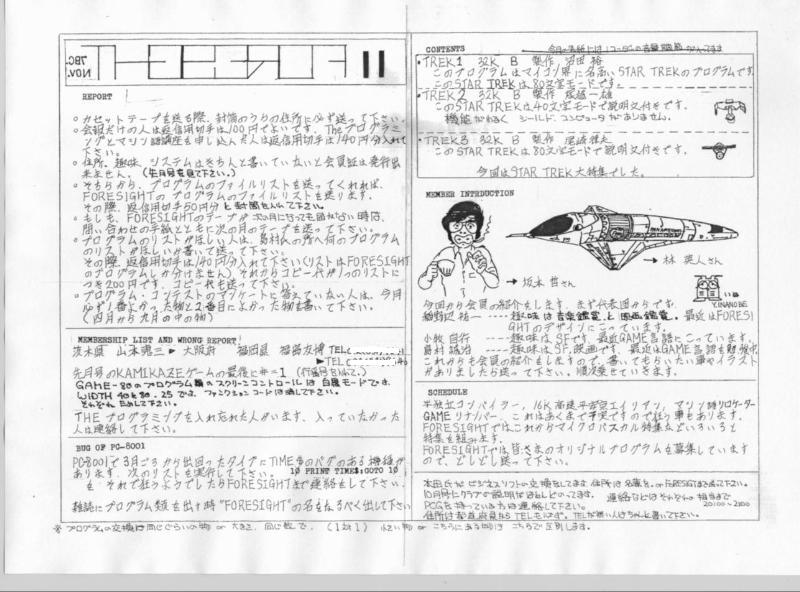 78C
NOV.
FORESIGHT 11
REPORT
○カセットテープを送る際、封筒のうらの住所に必ず送って下さい。
○会報だけの人は返信用切手は100円でよいです。Theプログラミ
ングとマシン語講座を申し込んだ人は返信用切手は140円分入れて
下さい。
○住所、趣味、システムはきちんと書いていないと会員証は発行出
来ません。(先月号意見て下さい。)
○そちらから、プログラムのファイルリストを送ってくれれば、
FORESIGHTのプログラムのファイルリストを送ります。
その際、返信用切手50円分と封筒を入れて下さい。
○もしも、FORESIGHTのテープが次の月になっても届かない時は、
問い合わせの手紙とともに次の月のテープを送って下さい。
○プログラムのリストがほしい人は、島村くんの所へ何のプログラム
のリストがほしいか書いて送って下さい。
その際、返信用切手は140円分入れて下さい(リストはFORESIGHT
のプログラムしか分けません)それからコピー代が1つのリストに
つき200円です。コピー代も送って下さい。
○プログラム・コンテストのアンケートに答えていない人は、今月
必ず1番よかった物と2番目によかった物を書いて下さい。
(四月から九月の中の物)
MEMBERSHIP LIST AND WRONG REPORT
茨木県 山本 ▶ 大阪府 福岡県 福島友博 TEL
▶TEL
先月号のKAMIKAZEゲームの最後に
GAME-80のプログラム類のスクリーンコントロールは白黒モードでは、
WIDTH 40と80、25では、ファンクションコードは消して下さい。
THEプログラミングを入れ忘れた人がいます、入っていなかった
人は連絡して下さい。
BUG OF PC-8001
PC8001で3月ごろから出回ったタイプにTIME$のバグのある機種が
あります。次のリストを実行して下さい。 10 PRINT TIME$:GOTO 10
を それで狂うようでしたらFORESIGHTまで連絡をして下さい。
雑誌にプログラム類を出す時"FORESIGHT"の名をなるべく出して下さい
※プログラムの交換は同じぐらいの物 or 大きさ、同じ数で、(1対1)
CONTENTS
・TREK.1 32K B 製作 沼田 裕
このプログラムはマイコン界に名高いSTAR TREKのプログラムです。
このSTAR TREKは80文字モードです。
・TREK2 32K B 製作 尾越一雄
このSTAR TREKは40文字モードで説明文付きです。
機能がわるく シールド、コンピュータがありません。
・TREK3 32K B 製作
このSTAR TREKは80文字モードで説明文付きです。
今回はSTAR TREK大特集でした。
MEMBER INTRDUCTION
→坂本 哲さん
→林 英人さん
Y.INANOBE
今回から会員の紹介をします。まず代表団からです。
細野辺 祐一----趣味は音楽鑑賞と映画鑑賞。最近はFORESI
GHTのデザインにこっています。
小牧 自行----趣味はSF です。最近GAME言語にこっています。
島村 誠治----趣味はSF映画です。最近はGAME言語を勉強中
これからも会員の紹介をします。書いてもらいたい事やイラスト
がありましたら送って下さい。順次載せていきます。
SCHEDULE
半独立コンパイラー、16K高速平安京エイリアン、マシン語リロケーター
GAMEリナンバー、これはあくまで予定ですので狂う事もあります。
FORESIGHTではこれからマイクロパスカル特集などいろいろと
特集を組みます。
FORESIGHTでは皆さまのオリジナルプログラムを募集しています
ので、どしどし送って下さい。
10月号にクラブの説明がほとんどのってます。 連絡などはそれぞれの担当まで
PCGを持っている方は連絡して下さい。 20:00〜21:00